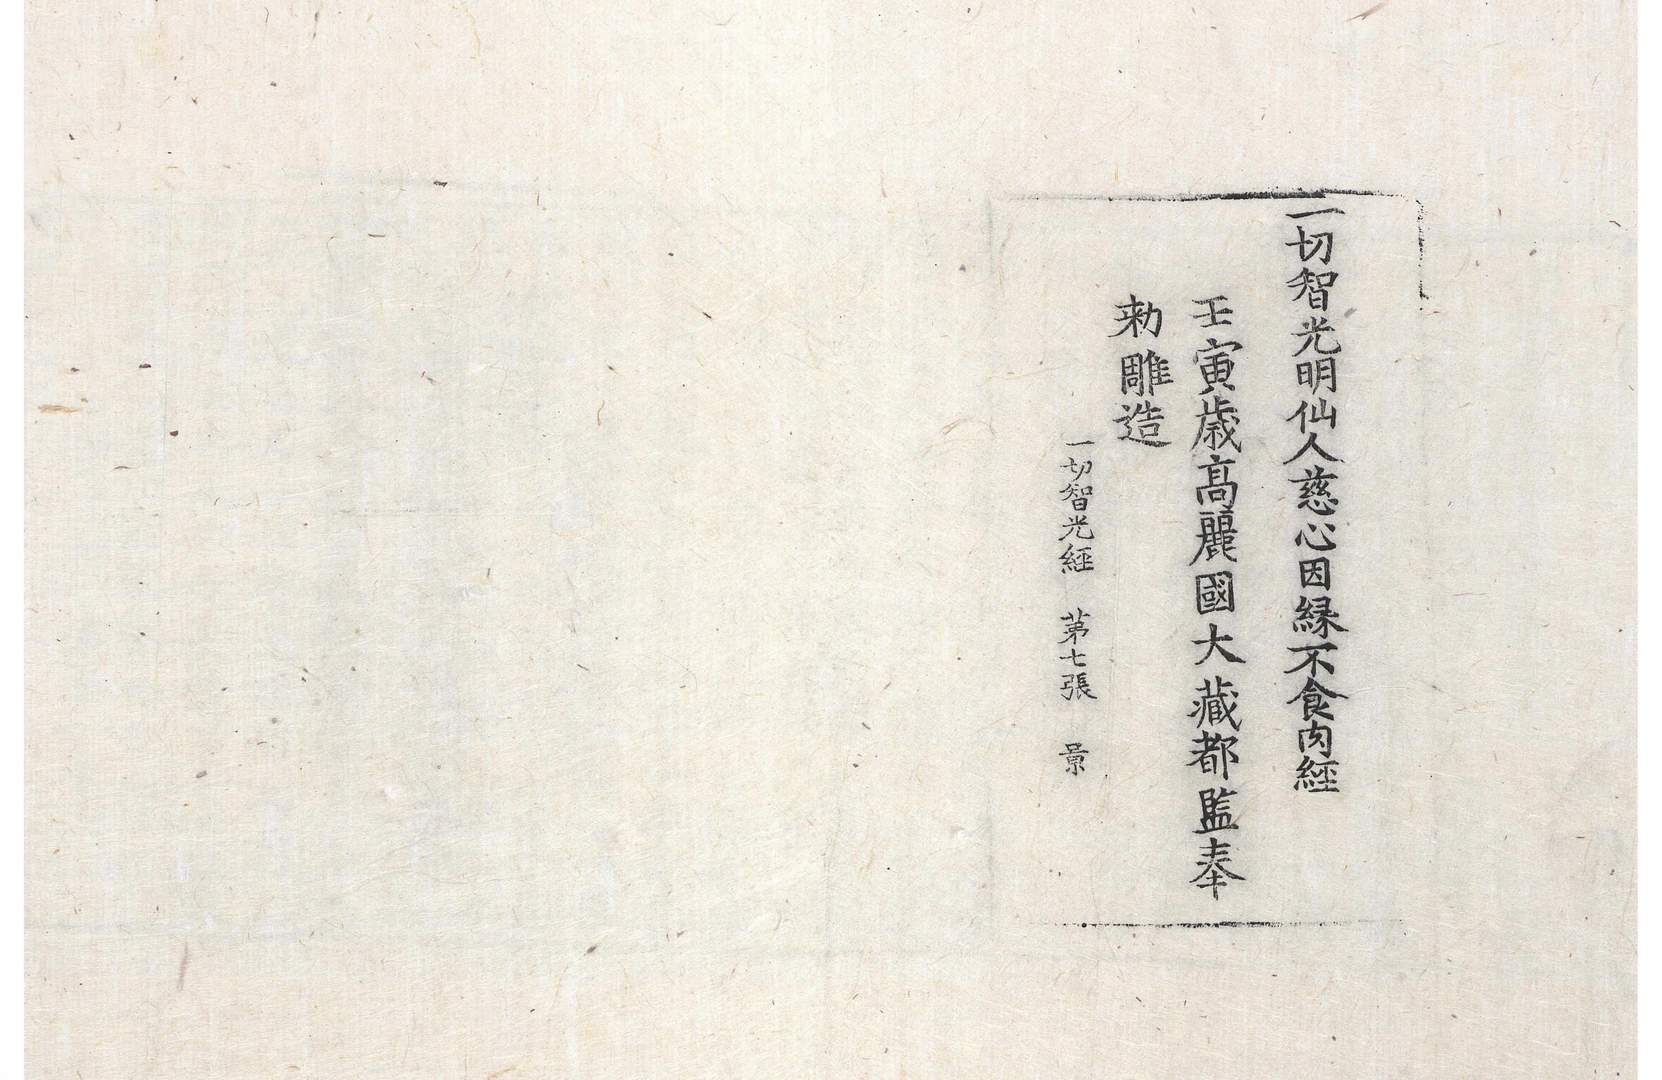 一切智光明仙人慈心因縁不食肉經
壬寅歳高麗國大藏都監奉
勑雕造
一切智光經 苐七張 景